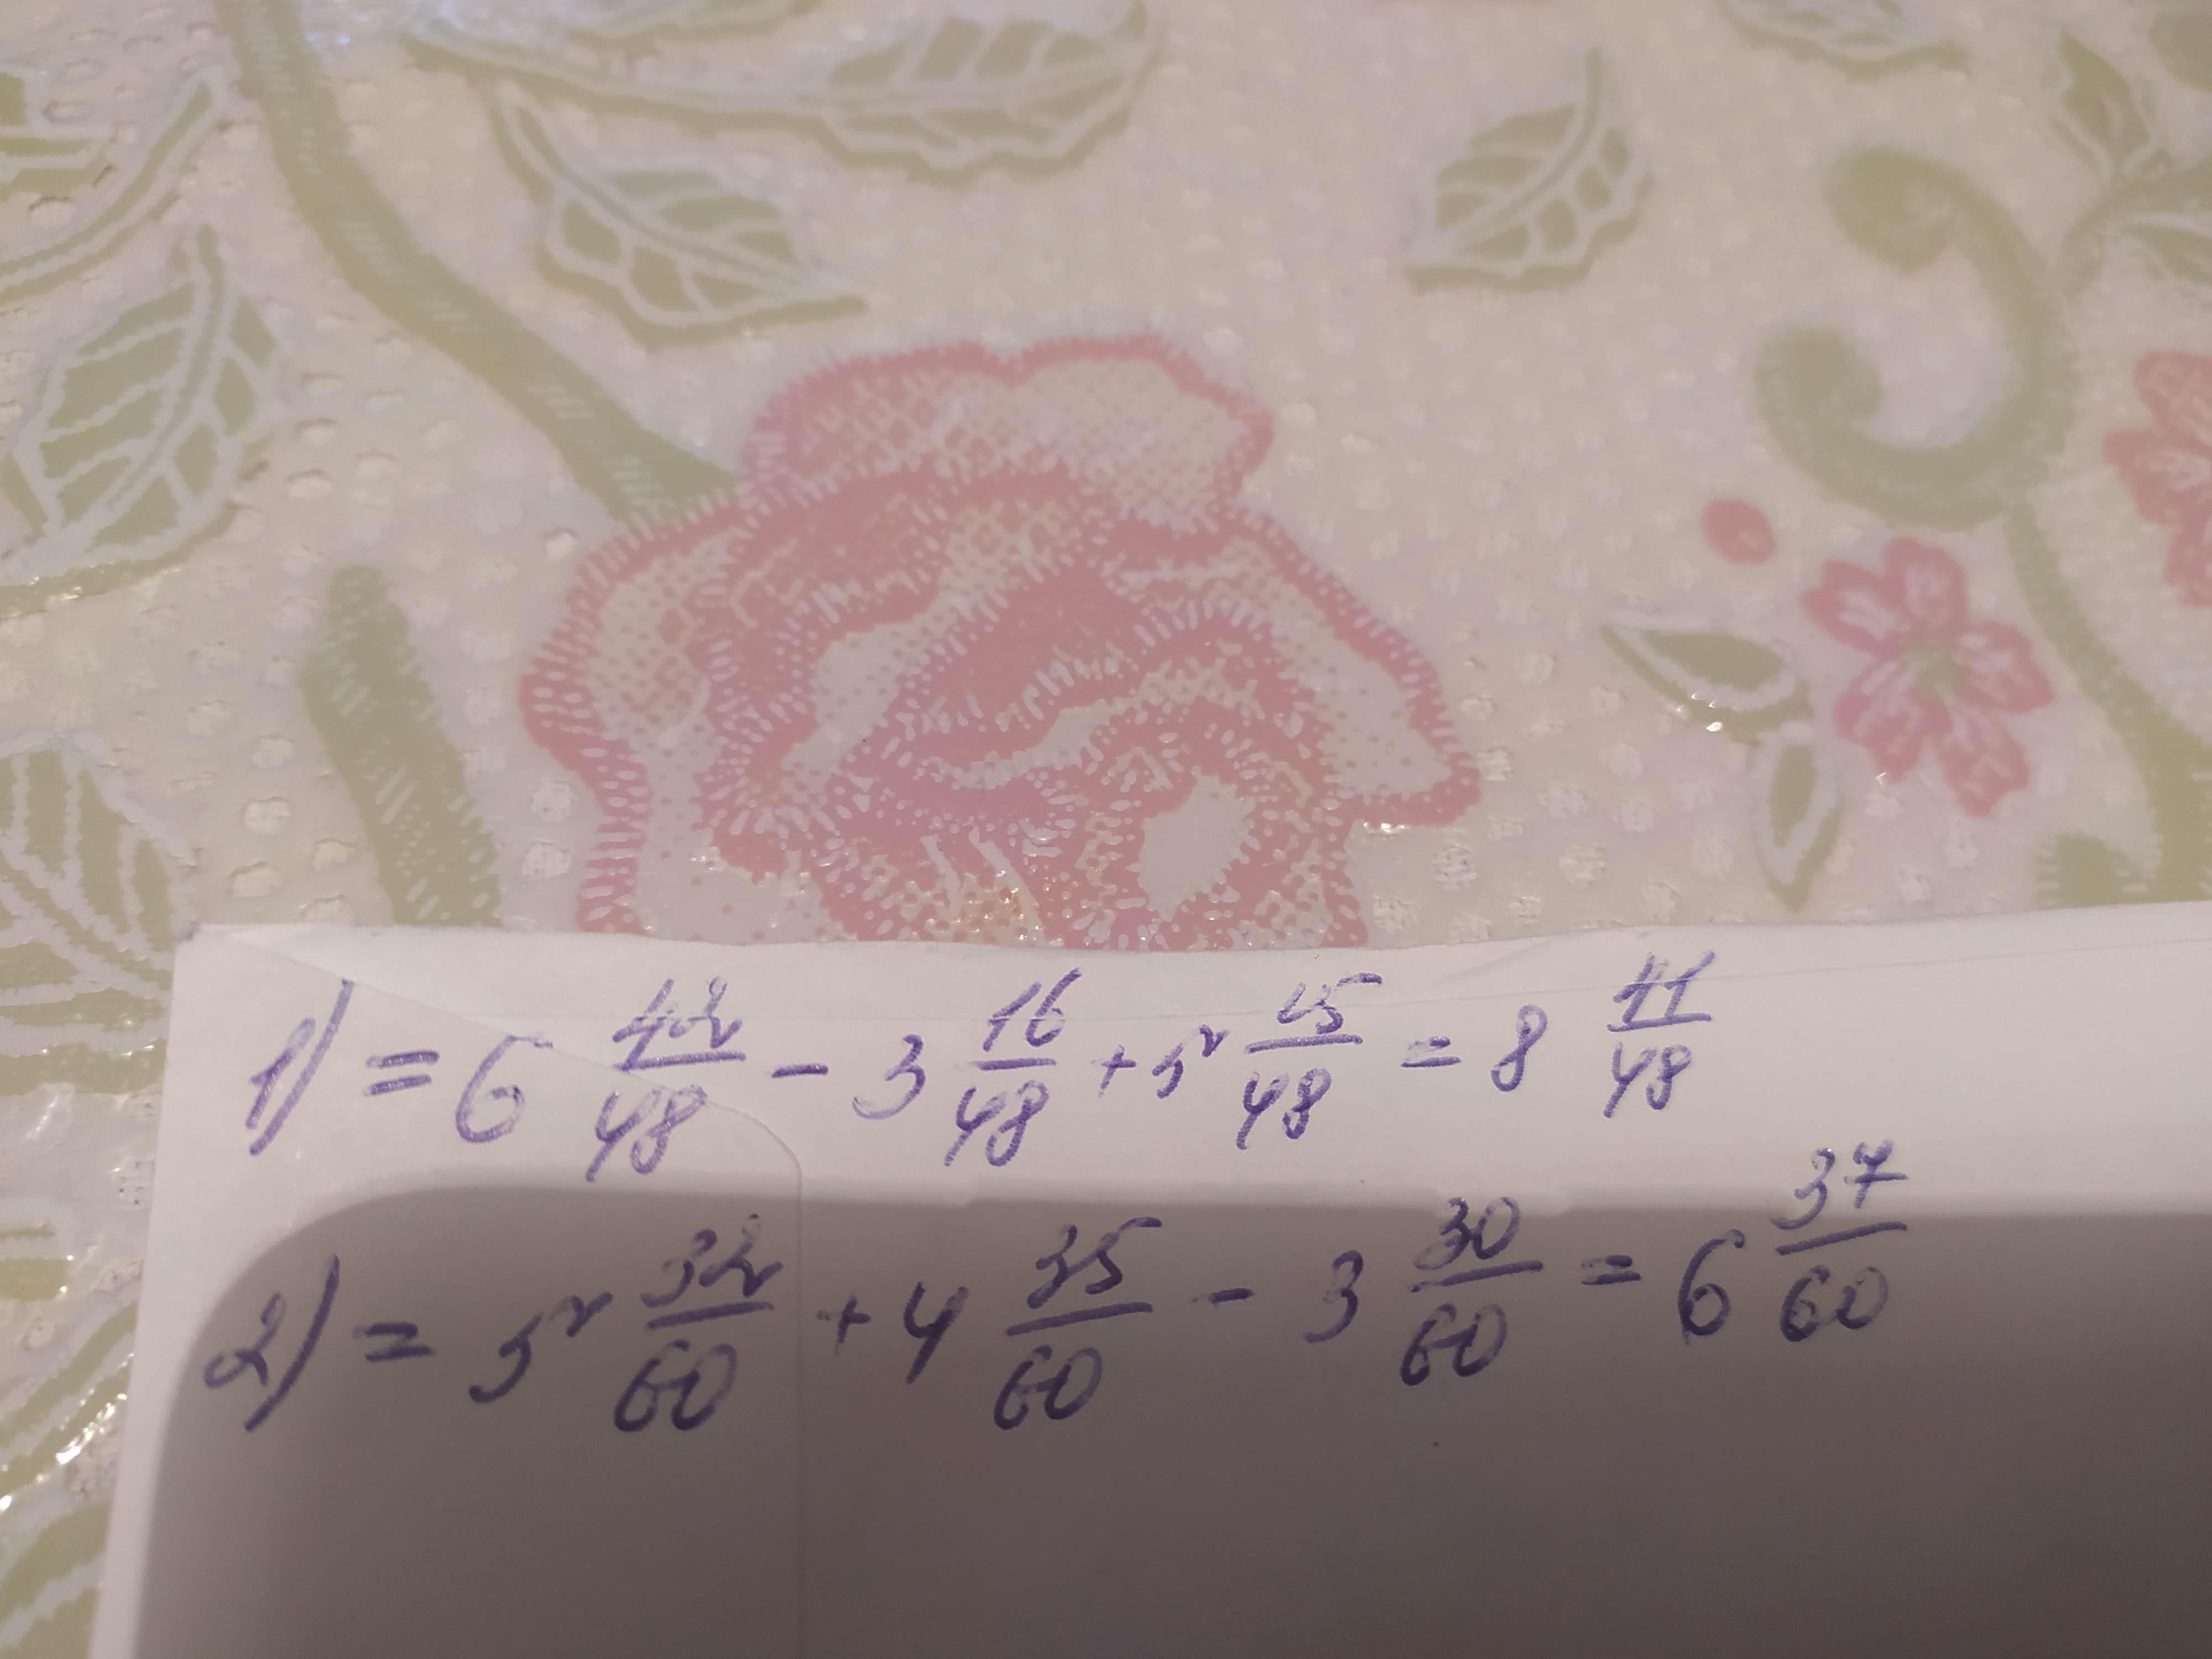 1) = 6 42/48 - 3 16/48 + 5 15/48 = 8 41/48
2) = 5 32/60 + 4 35/60 - 3 30/60 = 6 37/60